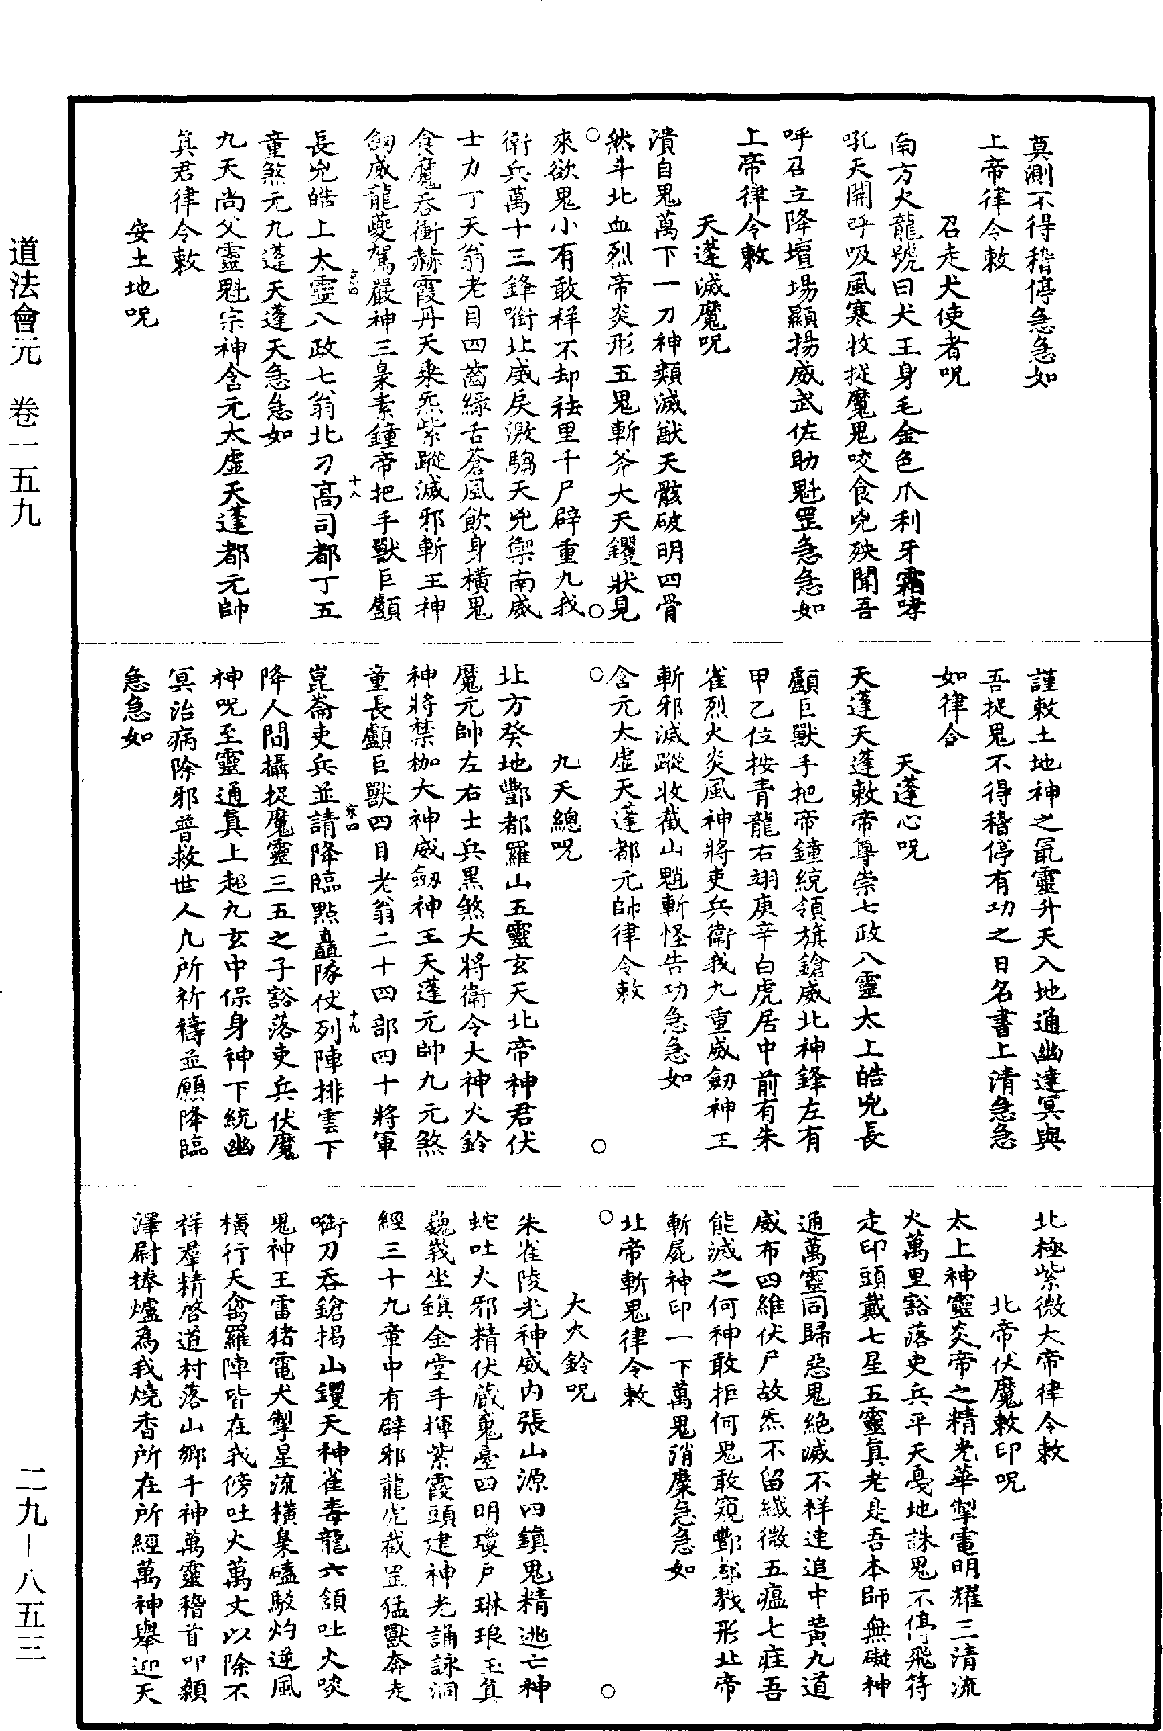 莫測不得稽停急急如
上帝律令敕
召走犬使者呪
南方火龍號曰犬王身毛金色爪利牙霜哮
吼天開呼吸風寒收捉魔鬼咬食兇殃聞吾
呼召立降壇場顯揚威武佐助魁罡急急如
上帝律令敕
天蓬滅魔呪
潰自鬼萬下一刀神類滅獸天骸破明四骨
然斗北血烈帝炎形五鬼斬斧大天钁狀見
來欲鬼小有敢样不却祛里千尸辟重九我
衛兵萬十三鋒啣北威戾激騶天兇禦南威
士力丁天翁老目四齒綠舌蒼風飲身橫鬼
食魔吞衝赫霞丹天來炁紫蹤滅邪斬王神
劒威龍夔駕嚴神三梟素鐘帝把手獸巨顱
長兇皓上太靈八政七翁北刁高司都丁五
童煞元九蓬天蓬天急急如
九天尚父靈魁宗神含元太虛天蓬都元帥
真君律令敕
安土地呪
謹敕土地神之最靈升天入地通幽達冥與
吾捉鬼不得稽停有功之日名書上清急急
如律令
天蓬心呪
天蓬天蓬敕帝尊崇七政八靈太上皓兇長
顱巨獸手把帝鐘統領旗鎗威北神鋒左有
甲乙位按青龍右翊庚辛白虎居中前有朱
雀烈火炎風神將吏兵衛我九重威劒神王
斬邪滅蹤收截山魈斬怪告功急急如
含元太虛天蓬都元帥律令敕
九天總呪
北方癸地酆都羅山五靈玄天北帝神君伏
魔元帥左右士兵黑煞大將衛令大神火鈴
神將禁枷大神威劒神王天蓬元帥九元煞
童長顱巨獸四目老翁二十四部四十將軍
崑崙吏兵並請降臨點矗隊仗列陣排雲下
降人間攝捉魔靈三五之子豁落吏兵伏魔
神呪至靈通真上超九玄中保身神下統幽
冥治病除邪普救世人凡所祈禱並願降臨
急急如
北極紫微大帝律令敕
北帝伏魔敕印呪
太上神靈炎帝之精光華掣電明耀三清流
火萬里豁落吏兵平天戞地誅鬼不停飛符
走印頭戴七星五靈真老是吾本師無礙神
通萬靈同歸惡鬼絕滅不祥速追中黃九道
威布四維伏尸故炁不留纖微五瘟七疰吾
能滅之何神敢拒何鬼敢窺酆都戮形北帝
斬屍神印一下萬鬼消糜急急如
北帝斬鬼律令敕
大火鈴呪
朱雀陵光神威內張山源四鎮鬼精逃亡神
蛇吐火邪精伏藏嵬臺四明瓊戶琳琅玉真
巍峩坐鎮金堂手揮紫霞頭建神光誦詠洞
經三十九章中有辟邪龍虎截罡猛獸奔走
啣刀吞鎗揭山钁天神雀毒龍六頷吐火啖
鬼神王雷猪電犬掣星流橫梟磕駁灼逆風
橫行天禽羅陣皆在我傍吐火萬丈以除不
祥羣精啓道村落山鄉千神萬靈稽首叩顙
澤尉捧爐為我燒香所在所經萬神舉迎天
道法會元 卷一五九
二九—八五三